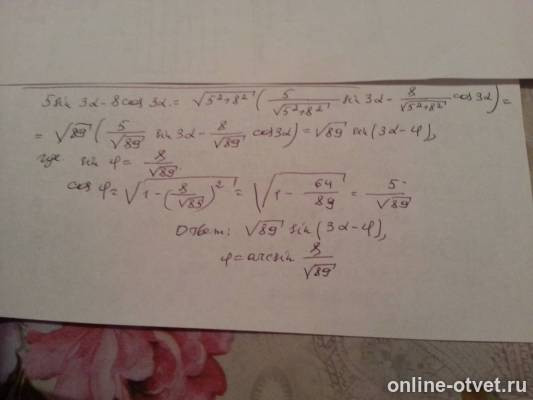 5 sin 3α - 8 cos 3α = √(5²+8²) (5/√(5²+8²) sin 3α - 8/√(5²+8²) cos 3α) =
= √89 (5/√89 sin 3α - 8/√89 cos 3α) = √89 sin(3α - φ),
где sin φ = 8/√89
cos φ = √(1 - (8/√89)²) = √(1 - 64/89) = 5/√89
Ответ: √89 sin(3α - φ),
φ = arcsin 8/√89
online-otvet.ru